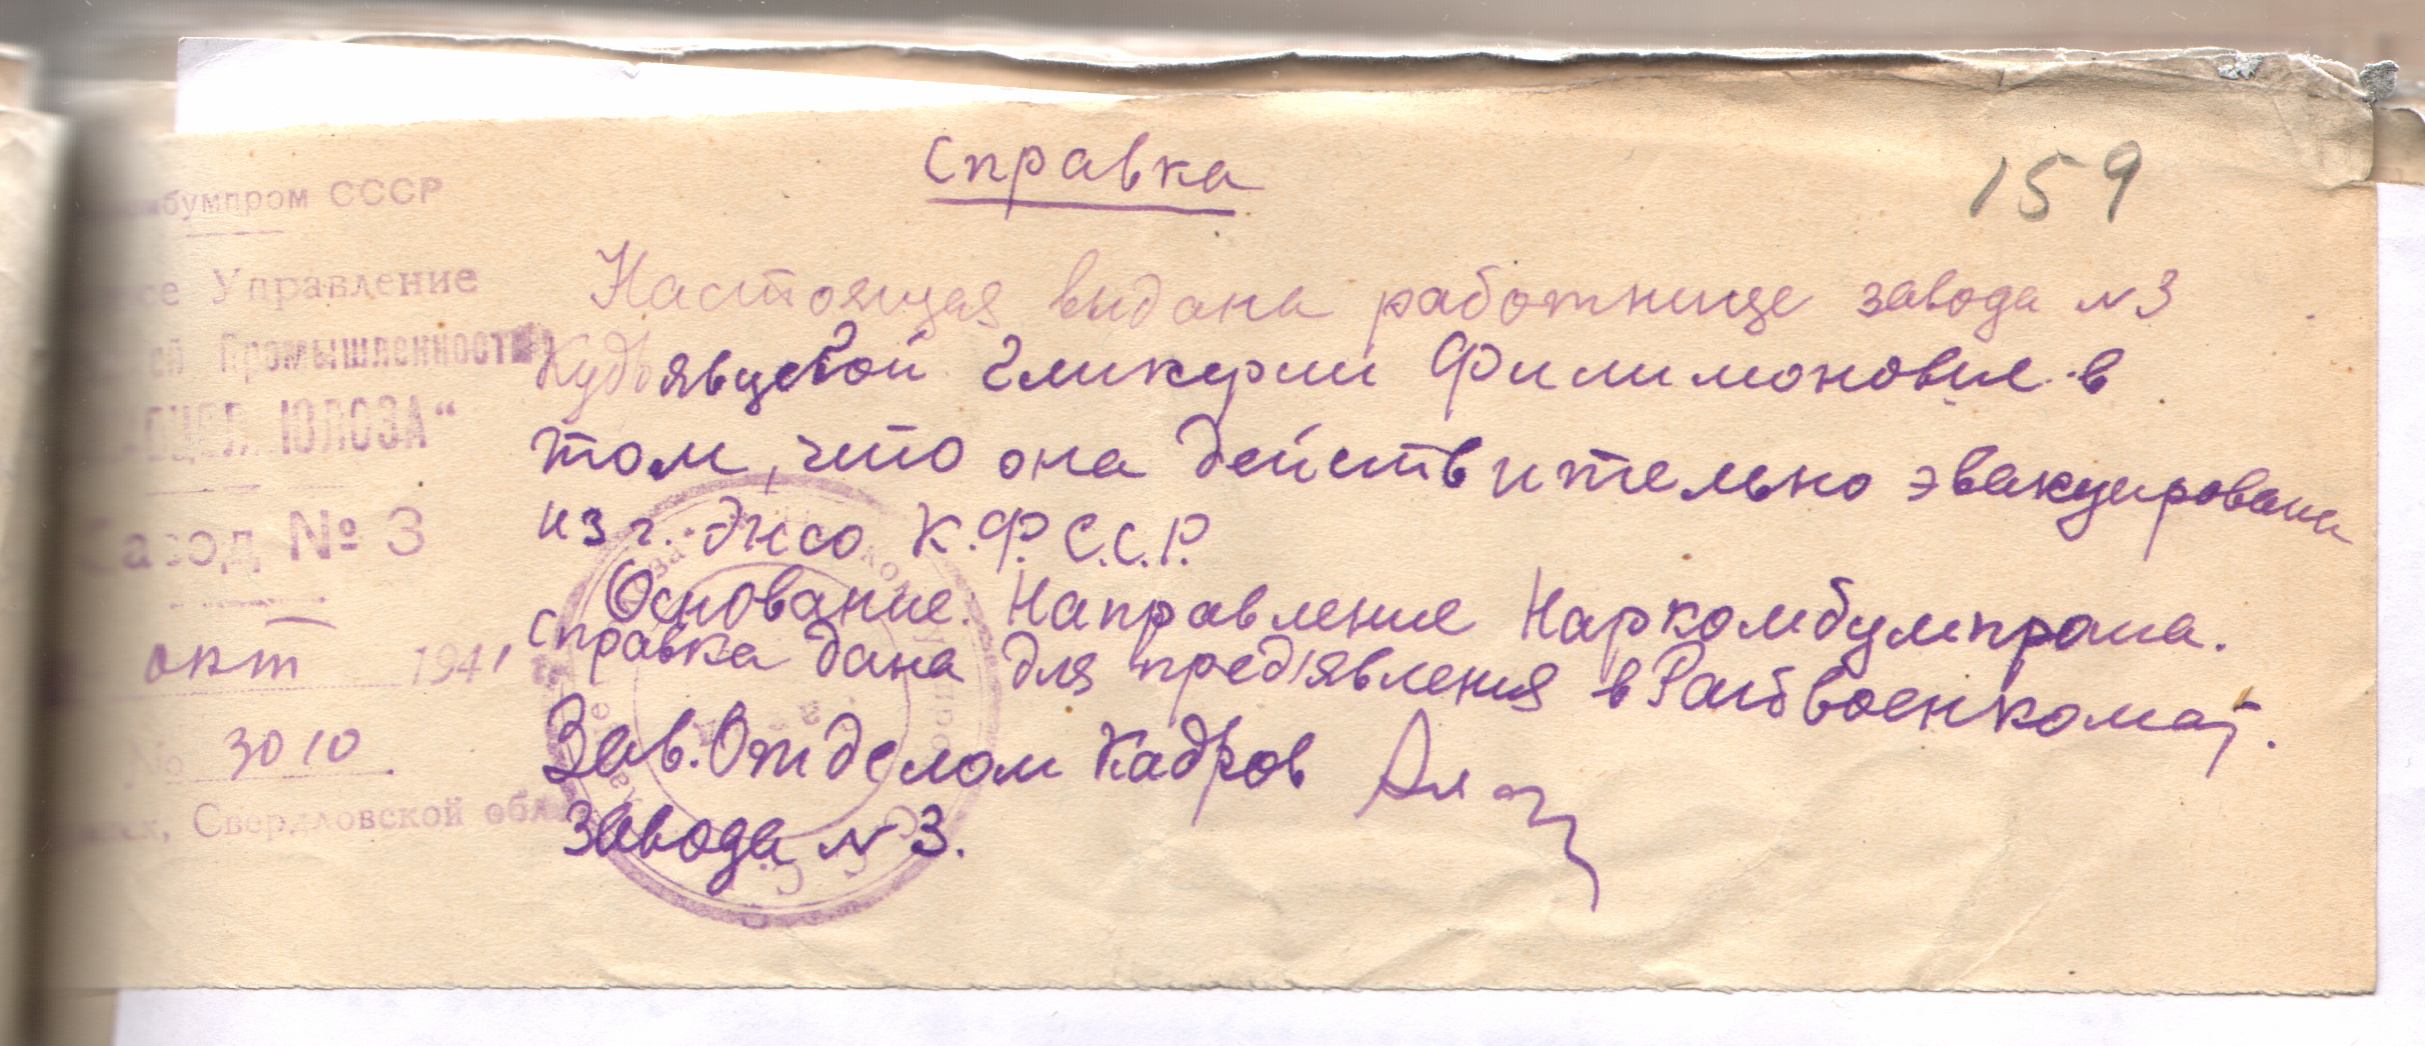 Справка
159
бумпром СССР
Управление
Промышленности
ЮЛОЗА"
Завод № 3
окт 1941
№ 3010
Свердловской обл
Настоящая выдана работнице завода N 3
Кудрявцевой Гликерии Филимоновне в
том, что она действительно эвакуирована
из г. Энсо К.Ф.С.С.Р.
Основание: Направление Наркомбумпрома.
Справка дана для пред'явления в Райвоенкомат.
Зав. Отделом Кадров
Завода N 3.